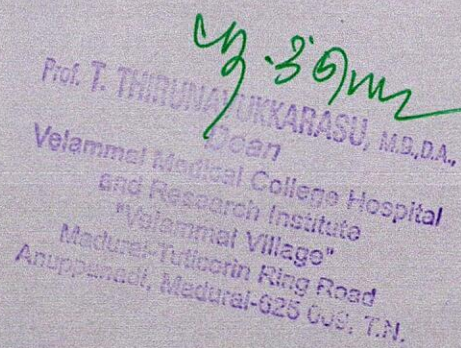 Prof. T. THIRUNAVUKKARASU, M.B.,D.A.,
Dean
Velammal Medical College Hospital
and Research Institute
"Velammal Village"
Madurai-Tuticorin Ring Road
Anuppanadi, Madurai-625 009. T.N.